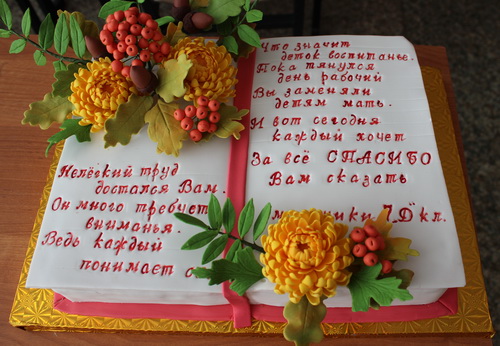 Нелёгкий труд
достался Вам.
Он много требует
вниманья.
Ведь каждый
понимает
Что значит
деток воспитанье.
Пока тянулся
день рабочий
Вы заменяли
детям мать.
И вот сегодня
каждый хочет
За всё СПАСИБО
Вам сказать
7„Д" кл.